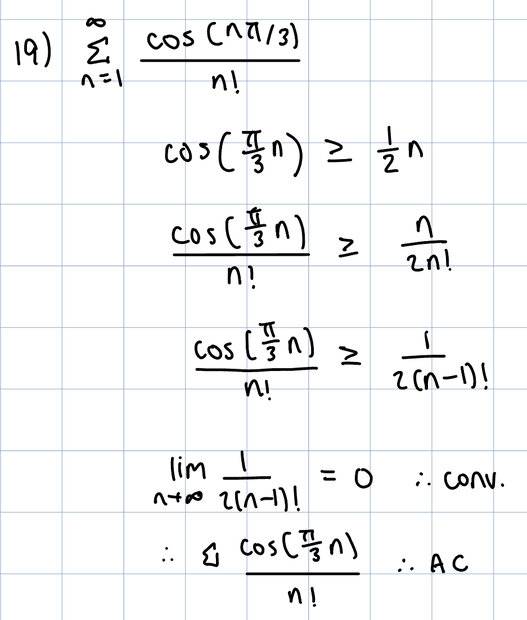 19) ∞ Σ n=1 cos(nπ/3) / n!
cos(π/3 n) ≥ 1/2 n
cos(π/3 n) / n! ≥ n / 2n!
cos(π/3 n) / n! ≥ 1 / 2(n-1)!
lim n→∞ 1 / 2(n-1)! = 0 ∴ conv.
∴ Σ cos(π/3 n) / n! ∴ AC